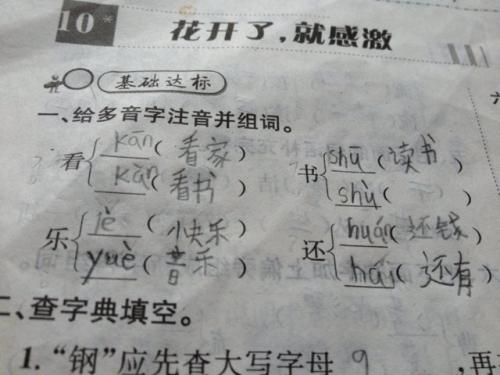 10* 花开了，就感激
基础达标
一、给多音字注音并组词。
看 kān（看家） 书 shū（读书）
kàn（看书） shù（）
乐 lè（快乐） 还 huán（还钱）
yuè（音乐） hái（还有）
二、查字典填空。
1.“钢”应先查大写字母 g ，再